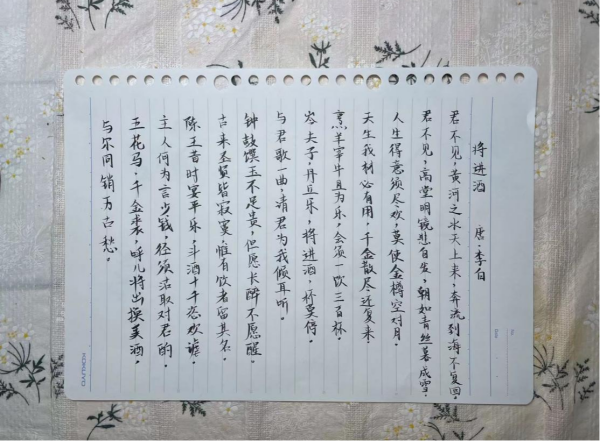 将进酒 唐·李白
君不见,黄河之水天上来,奔流到海不复回。
君不见,高堂明镜悲白发,朝如青丝暮成雪。
人生得意须尽欢,莫使金樽空对月。
天生我材必有用,千金散尽还复来
烹羊宰牛且为乐,会须一饮三百杯。
岑夫子,丹丘乐,将进酒,杯莫停。
与君歌一曲,请君为我倾耳听。
钟鼓馔玉不足贵,但愿长醉不愿醒。
古来圣贤皆寂寞,惟有饮者留其名。
陈王昔时宴平乐,斗酒十千恣欢谑。
主人何为言少钱,径须沽取对君酌。
五花马,千金裘,呼儿将出换美酒。
与尔同销万古愁。
KOKUYO